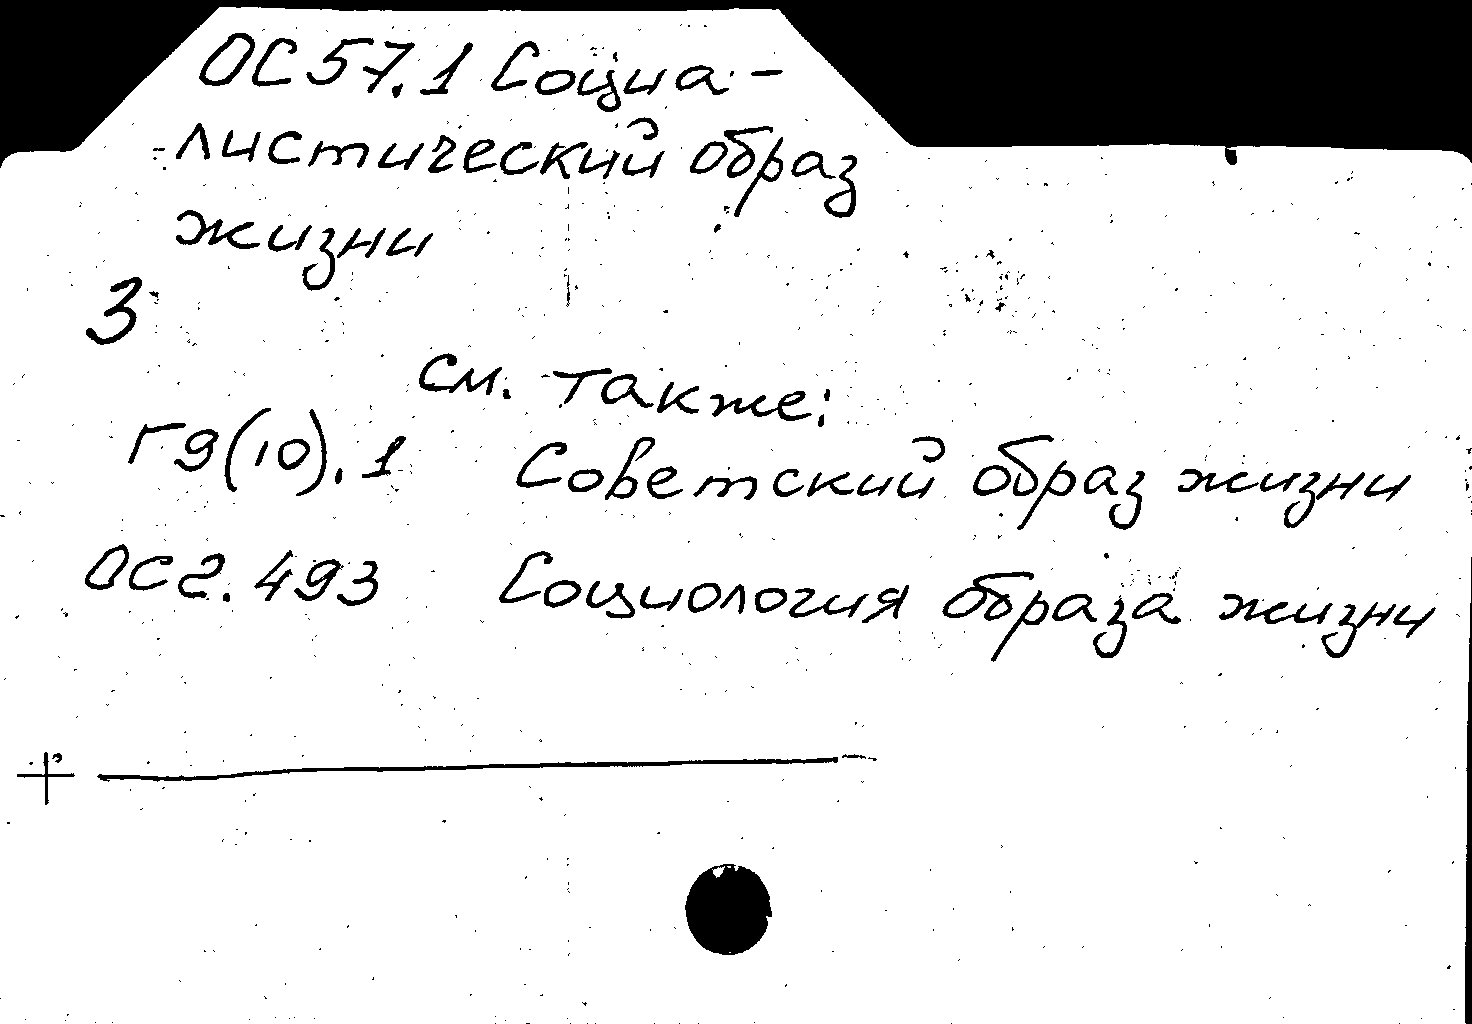 ОС57.1 Социа-
листический образ
жизни
3
см. также:
Г9(10).1 Советский образ жизни
ОС2.493 Социология образа жизни